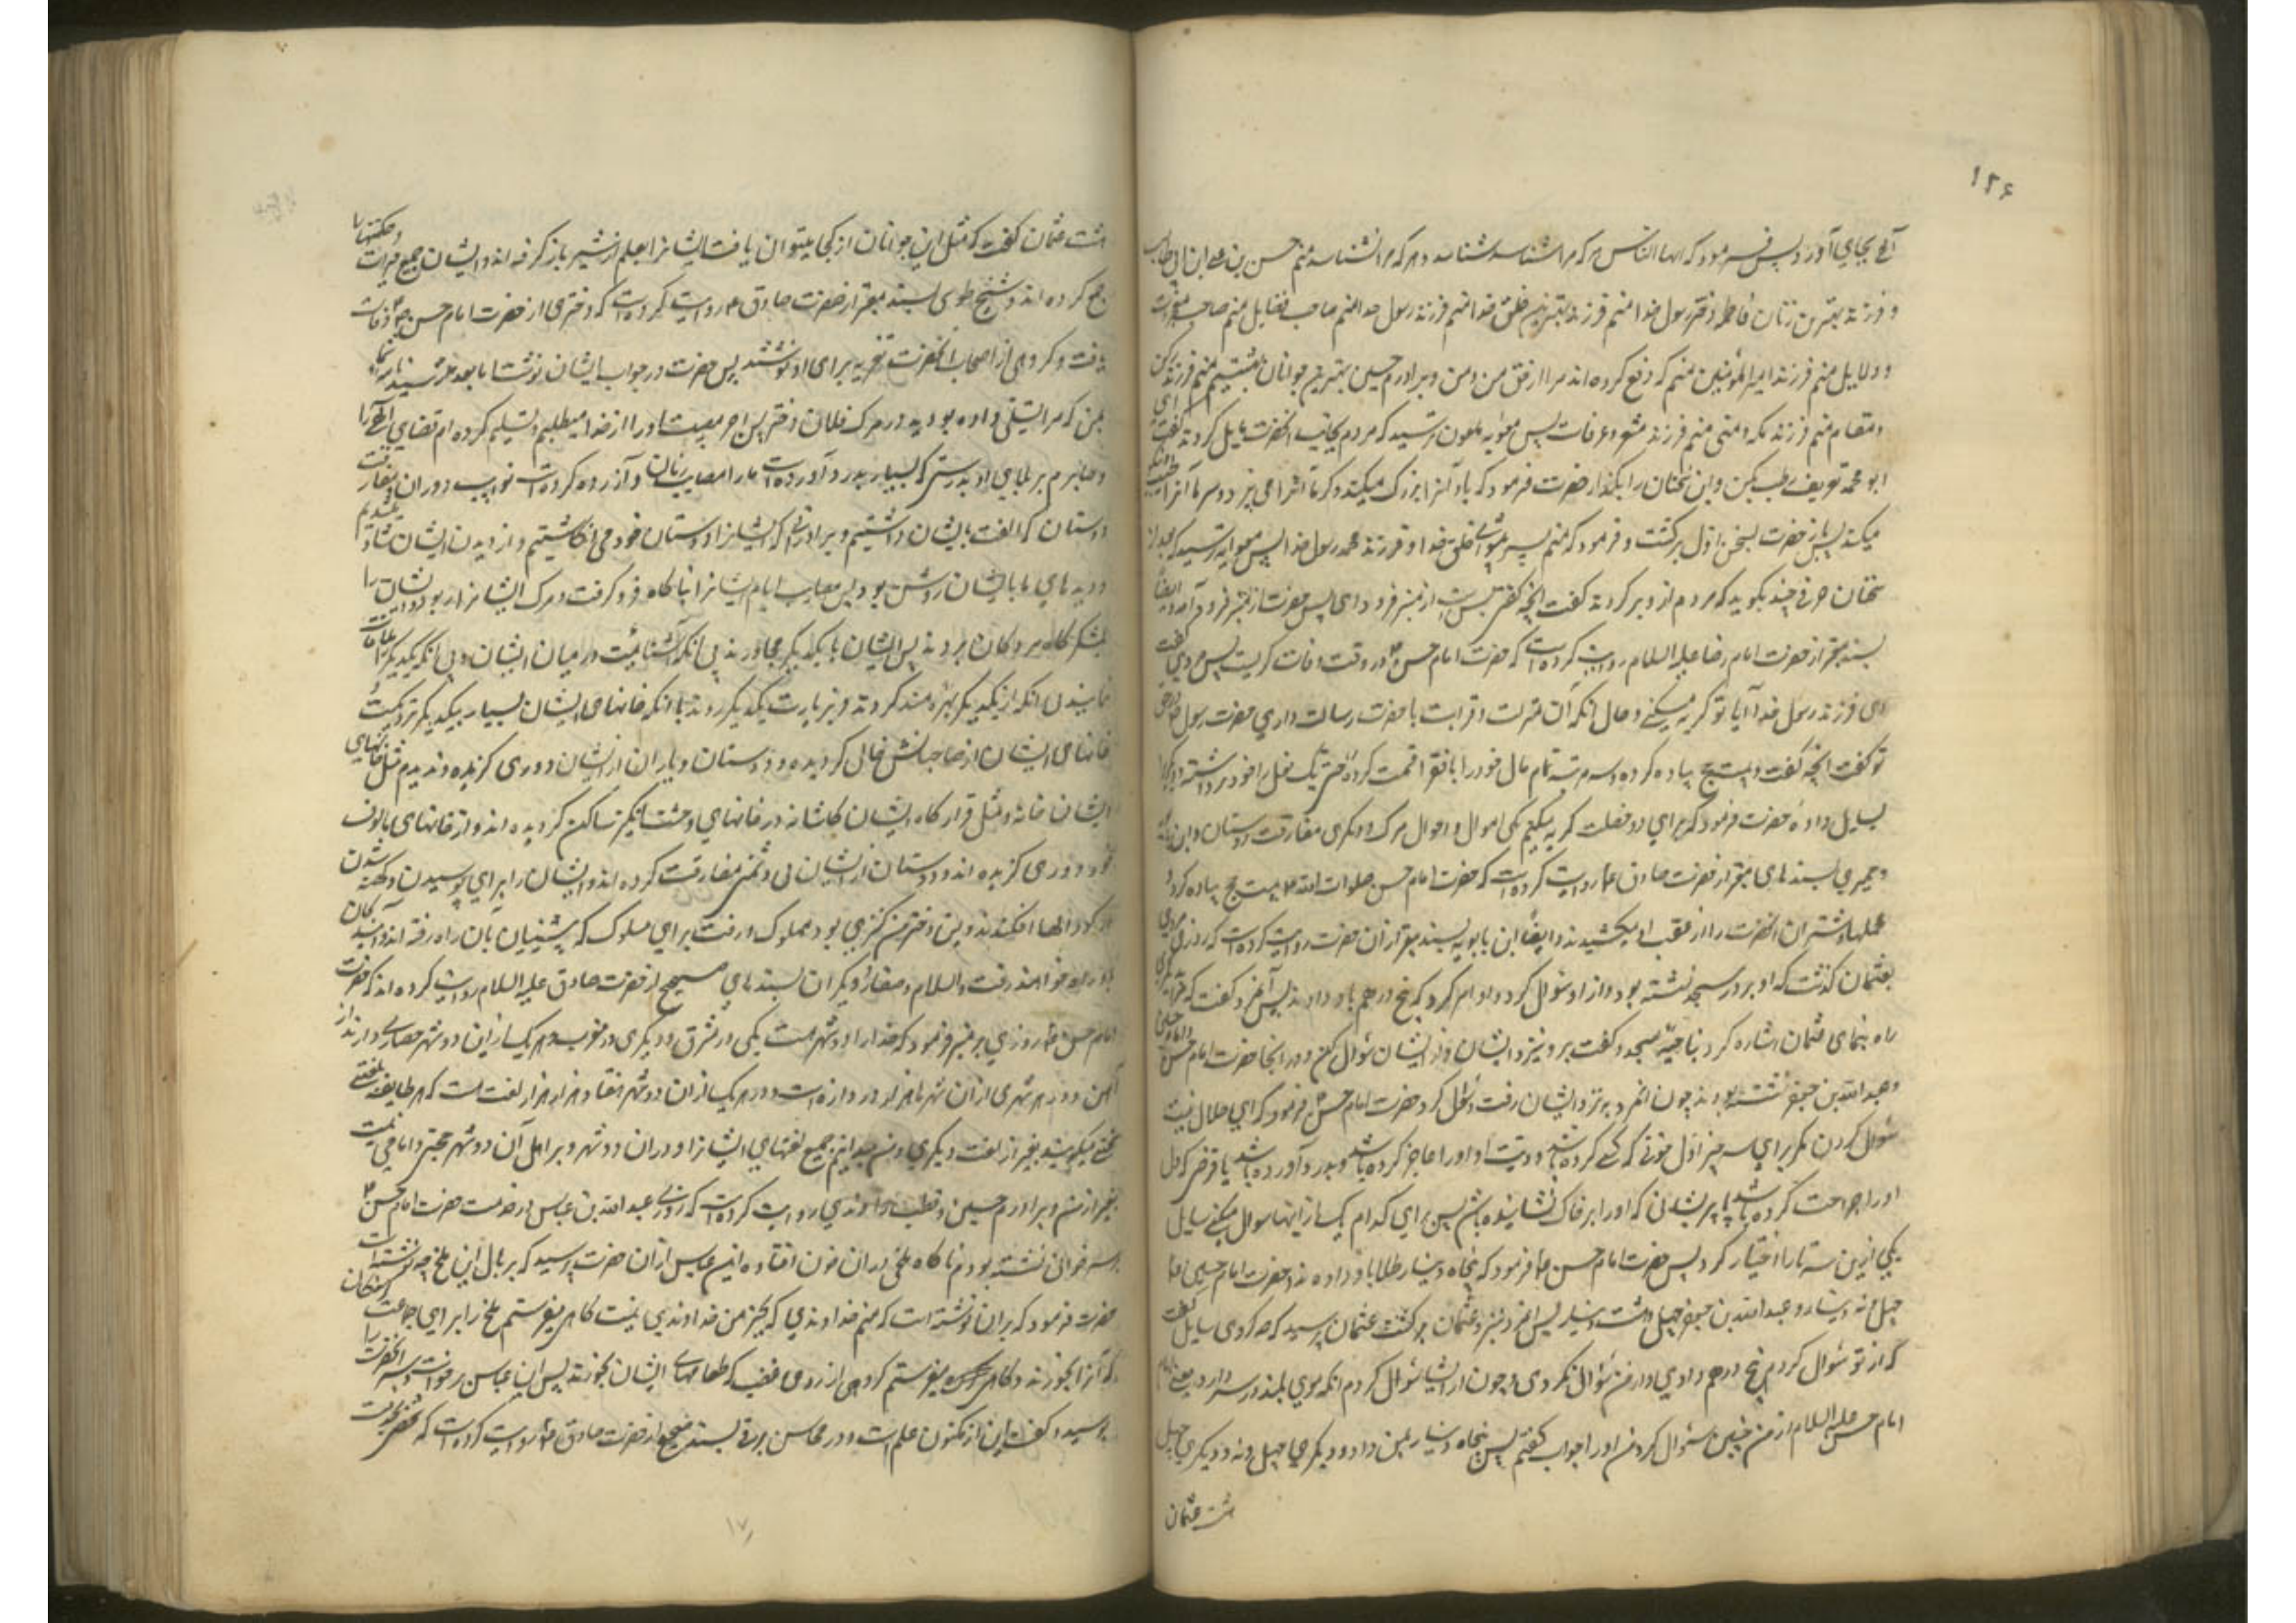 ۱۲۶
الهی بجای آورد پس فرمود که ایها الناس هر که مرا شناسد شناسد و هر که مرا نشناسد منم حسن بن علی ابن ابی طالب
و فرزند بهترین زنان فاطمه دختر رسول خدا منم فرزند بهترین خلق خدا منم فرزند رسول خدا منم صاحب فضایل منم صاحب معجزات
و دلایل منم فرزند امیرالمؤمنین منم که دفع کرده اند مرا از حق من و من و برادرم حسین بهترین جوانان بهشتیم منم فرزند رکن
و مقام منم فرزند مکه و منی منم فرزند مشعر و عرفات پس معویه ملعون ترسید که مردم بجانب آنحضرت مایل گردند گفت ای
ابو محمد تعریف رطب بکن و این سخنان را بگذار حضرت فرمود که باد آنرا بزرگ میکند و گرما آنرا می پزد و سرما آنرا
میکند پس باز حضرت بسخن اول برگشت و فرمود که منم پیشوای خلق خدا و فرزند محمد رسول خدا پس معویه ترسید که بعد از
سخنان حرفی چند بگوید که مردم از او برگردند گفت آنچه گفتی بس است از منبر فرود آی پس حضرت از منبر فرود آمد و ایضا
بسند معتبر از حضرت امام رضا علیه السلام روایت کرده است که حضرت امام حسن در وقت وفات گریست پس مردی گفت
ای فرزند رسول خدا آیا تو گریه میکنی و حال آنکه آن منزلت و قرابت با حضرت رسالت داری و حضرت رسول در حق
تو گفت آنچه گفت و بیست حج پیاده کرده و سه مرتبه تمام مال خود را با فقرا قسمت کرده حتی یک نعل را خود برداشته و دیگری را
بسایل داده حضرت فرمود که برای دو خصلت گریه میکنم یکی اهوال و احوال مرگ و دیگری مفارقت دوستان و
و حمیری بسندهای معتبر از حضرت صادق روایت کرده است که حضرت امام حسن صلوات الله علیه بیست حج پیاده کرد و
محملها و شتران آنحضرت را از عقب او میکشیدند و ایضا ابن بابویه بسند معتبر از آن حضرت روایت کرده است که روزی مردی
بعثمان گذشت که او بر در مسجد نشسته بود و از او سؤال کرد و او امر کرد که پنج درهم باو دادند پس آنمرد گفت که مرا بدیگری
راه بنمای عثمان اشاره کرد بناحیه مسجد و گفت برو نزد ایشان و از ایشان سؤال کن و در آنجا حضرت امام حسن و امام حسین
و عبدالله بن جعفر نشسته بودند چون آنمرد بنزد ایشان رفت و سؤال کرد حضرت امام حسن فرمود که ای حلال نیست
سؤال کردن مگر برای سه چیز اول خونی که کسی کرده باشد و دیت او او را عاجز کرده باشد و بدرد آورده باشد یا قرضی که دل
او را جراحت کرده باشد یا پریشانی که او را بر خاک نشانیده باشد پس برای کدام یک از اینها سؤال میکنی سایل
یکی از این سه تا را اختیار کرد پس حضرت امام حسن فرمود که پنجاه دینار طلا باو دادند و حضرت امام حسین
چهل و نه دینار و عبدالله بن جعفر چهل و هشت دینار پس آنمرد بنزد عثمان برگشت عثمان پرسید که چه کردی سایل گفت
که از تو سؤال کردم پنج درهم دادی و از من سؤال نکردی و چون از ایشان سؤال کردم آنکه موی بلند در سر دارد یعنی
امام حسن علیه السلام از من چنین سؤال کرد من او را جواب گفتم پس پنجاه دینار بمن داد و دیگری چهل و نه و دیگری چهل
هشت عثمان
هشت عثمان گفت که مثل این جوانان از کجا میتوان یافت ایشانرا بعلم از شیر باز گرفته اند و ایشان جمیع خیرات و حکمتها را
جمع کرده اند و شیخ طوسی بسند معتبر از حضرت صادق روایت کرده است که دختری از حضرت امام حسن وفات
یافت و گروهی از اصحاب آنحضرت تعزیه برای او نوشتند پس حضرت در جواب ایشان نوشت اما بعد رسید نامه شما
بمن که مرا تسلی داده بودید در مرگ فلان دختر پس اجر مصیبت او را از خدا میطلبم و تسلیم کرده ام قضای الهی را
و صابرم بر بلای او بدرستی که بسیار بدرد آورده است ما را مصایب زمان و آزرده کرده است نوایب دوران و مفارقت
دوستان که الفت بایشان داشتیم و برادرانی که ایشانرا دوستان خود می انگاشتیم و از دیدن ایشان شاد میشدیم
و دیده های ما بایشان روشن بود پس مصایب ایام ایشانرا بناگاه فرو گرفت و مرگ ایشانرا ربود و ایشان را
بلشکرگاه مردگان بردند پس ایشان با یکدیگر مجاورند بی آنکه آشنائیت در میان ایشان و بی آنکه یکدیگر را ملاقات
نمایند و بی آنکه از یکدیگر بهره مند گردند و بزیارت یکدیگر روند با آنکه خانهای ایشان بسیار بیکدیگر نزدیکست
خانهای ایشان از صاحبانش خالی گردیده و دوستان و یاران از ایشان دوری گزیده و ندیدم مثل خانهای
ایشان خانه و مثل قرارگاه ایشان کاشانه در خانهای وحشت انگیز ساکن گردیده اند و از خانهای مألوف
خود دوری گزیده اند و دوستان از ایشان بی دشمنی مفارقت کرده اند و ایشان را برای پوسیدن و کهنه شدن
در گودالها افکندند و این دختر من کنیزی بود مملوک و رفت براهی مسلوک که پیشینیان بآن راه رفته اند و آیندگان
بآن راه خواهند رفت والسلام و صفار و دیگران بسندهای صحیح از حضرت صادق علیه السلام روایت کرده اند که حضرت
امام حسن روزی بر منبر فرمود که خدا را دو شهر هست یکی در مشرق و دیگری در مغرب و هر یک از این دو شهر حصاری دارند از
آهن و در هر شهری از آن شهرها هزار در دروازه است و در هر یک از آن دو شهر هفتاد هزار هزار لغت است که هر طایفه بلغتی
سخن میگویند بغیر از لغت دیگری و من میدانم جمیع لغتهای ایشانرا و در آن دو شهر و بر اهل آن دو شهر حجتی و امامی نیست
بغیر از من و برادرم حسین و قطب راوندی روایت کرده است که روزی عبدالله بن عباس در خدمت حضرت امام حسن
بر سر خوانی نشسته بودم ناگاه ملخی در آن خوان افتاد ابن عباس از آن حضرت پرسید که بر بال این ملخ چه نوشته است
حضرت فرمود که بر آن نوشته است که منم خداوندی که بجز من خداوندی نیست گاهی میفرستم ملخ را برای جماعت گرسنگان
که آنرا بخورند و گاهی میفرستم گروهی از روی غضب که طعامهای ایشان بخورند پس ابن عباس برخواست و سر آنحضرت را
بوسید و گفت این از مکنون علم است و در محاسن برقی بسند صحیح از حضرت صادق روایت کرده است که شخصی بخدمت
۱۷